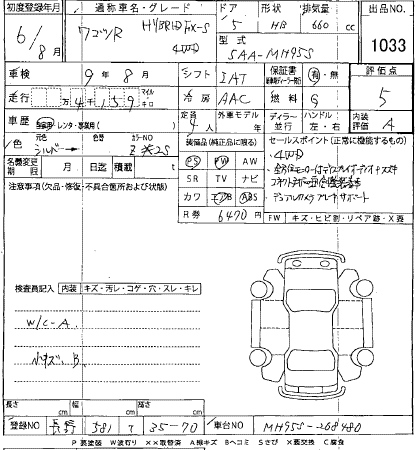 初度登録年月 通称車名・グレード ドア 形状 排気量 出品NO.
6/8月 ワゴンR HYBRID FX-S 4WD 5 HB 660 cc 1033
型式 5AA-MH95S
車検 9年 8月 シフト IAT 保証書 有・無 評価点 5
走行 万 4千 159 マイル キロ 冷房 AAC 燃料 G
車歴 自家用・レンタ・事業用( ) 定員 4人 外車モデル ディーラー 並行 ハンドル 左・右 内装 評価 A
色 元色 シルバー カラーNO Z2S 装備品(純正品に限る) セールスポイント(正常に機能するもの)
PS PW AW 4WD
名義変更期限 月 日迄 積載 t SR TV ナビ
注意事項(欠品・修復・不具合箇所および状態) カワ エアB ABS
デュアルカメラブレーキサポート
R券 6470円 FW キズ・ヒビ割・リペア跡・X要
検査員記入 内装 キズ・汚レ・コゲ・穴・スレ・キレ
W/C-A
小キズ、B
長さ cm 幅 cm 高さ cm
登録NO 長野 581 て 35-70 車台NO MH95S-268480
P要塗装 W波有り ××取替済 A線キズ Bヘコミ Sさび X要交換 C腐食